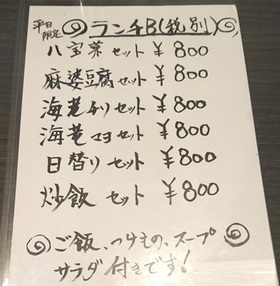 平日限定 ランチB(税別)
八宝菜セット ¥800
麻婆豆腐セット ¥800
海老チリセット ¥800
海老マヨセット ¥800
日替りセット ¥800
炒飯セット ¥800
ご飯、つけもの、スープ
サラダ付きです!